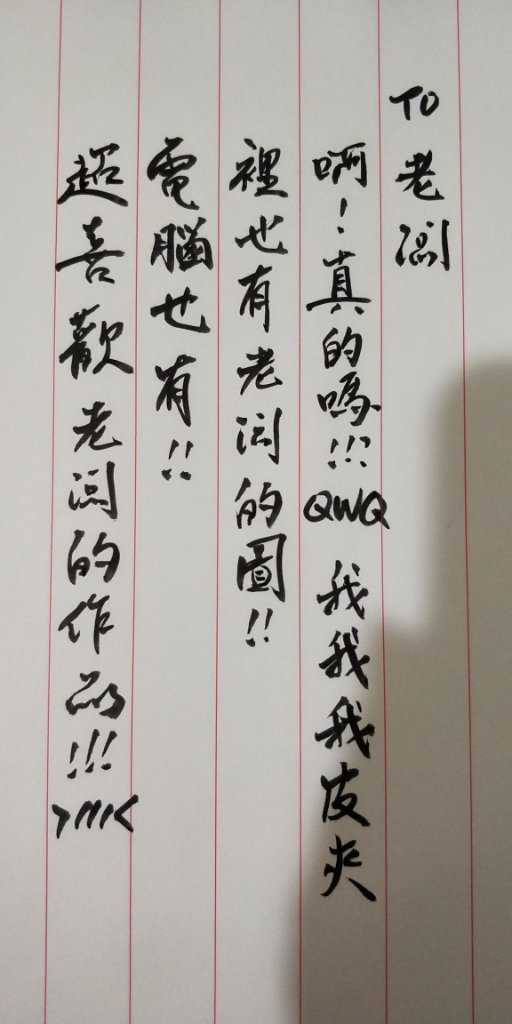 TO 老闆
啊!真的嗎!!! QWQ 我我我皮夾
裡也有老闆的圖!!
電腦也有!!
超喜歡老闆的作品!!! >///<